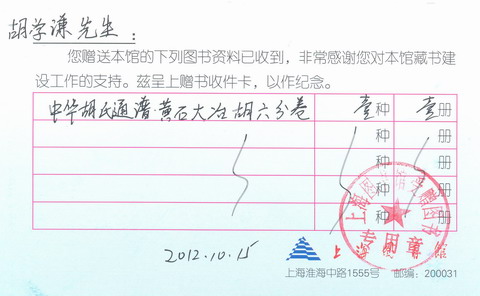 胡学谦先生：
您赠送本馆的下列图书资料已收到，非常感谢您对本馆藏书建
设工作的支持。兹呈上赠书收件卡，以作纪念。
中华胡氏通谱·黄石大冶胡六分卷 壹种 壹册
种 册
种 册
种 册
种 册
2012.10.15
上海图书馆
专用章
上海淮海中路1555号 邮编：200031